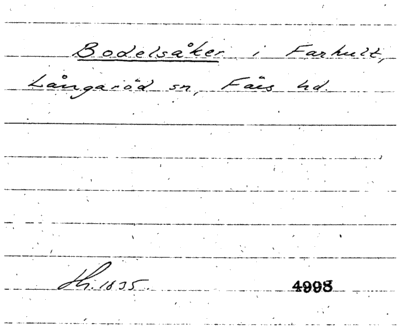 Bodelsåker i Farhult,
Långaröd sn, Färs hd.
Hh. 1835. 4998